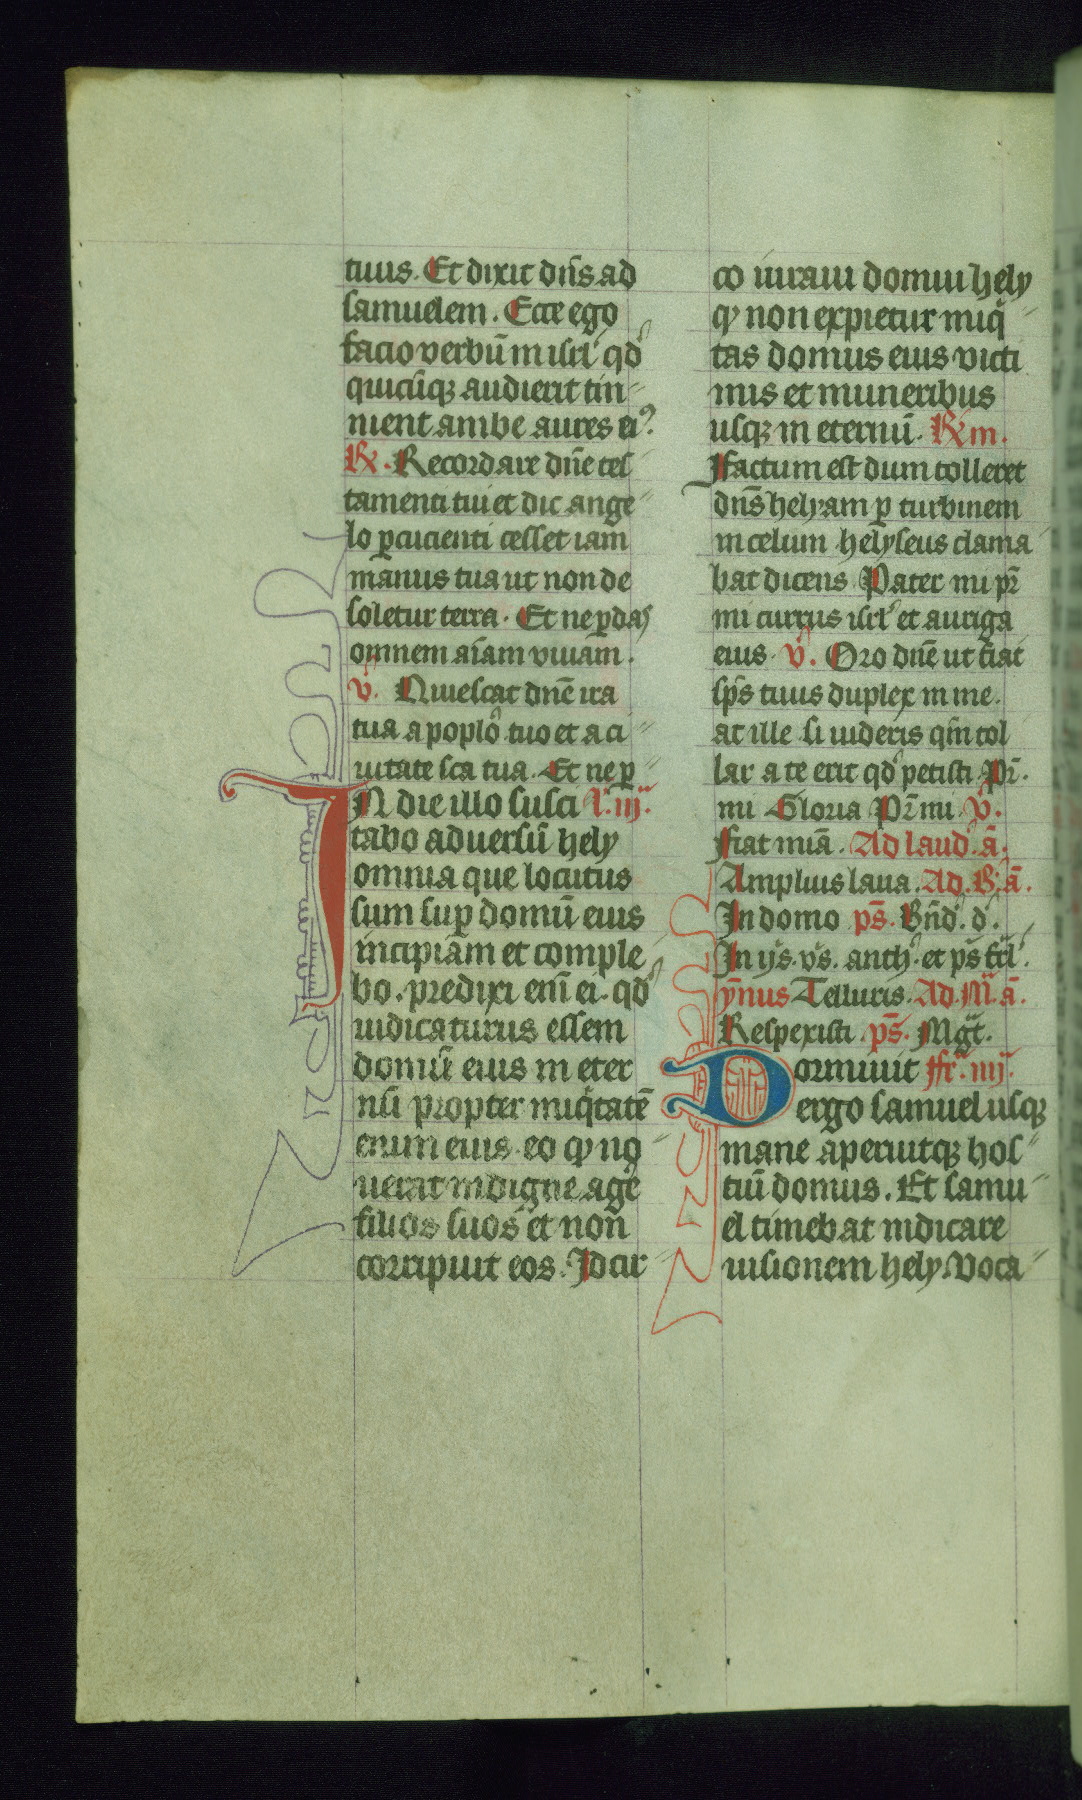 tuus. Et dixit dn̄s ad
samuelem. Ecce ego
facio verbū in isrl' qd'
quicūq; audierit tin-
nient ambe aures ei'.
R. Recordare dn̄e tes
tamenti tui et dic ange
lo p̱cucienti cesset iam
manus tua ut non de
soletur terra. Et ne p̱das
omnem aīam viuam.
v. Quiescat dn̄e ira
tua a poplo tuo et a ci
uitate sca tua. Et ne p̱
IN die illo susci l. iij.
tabo aduersū hely
omnia que locutus
sum sup̱ domū eius
incipiam et comple
bo. predixi eni ei. qd'
iudicaturus essem
domū eius in eter
nū propter iniq̄tatē
eius. eo q no
uerat indigne age
filios suos et non
corripuit eos. Idcir
co iuraui domui hely
q non expietur iniq
tas domus eius victi
mis et muneribus
usq; in eternū. R m.
Factum est dum tolleret
dn̄s helyam p̱ turbinem
in celum helyseus clama
bat dicens Pater mi pr̄
mi currus isrl' et auriga
eius. v. Oro dn̄e ut fiat
sp̄s tuus duplex in me.
at ille si uideris qn̄ tol
lar a te erit qd' petisti Pr̄.
mi Gloria Pr̄ mi v.
Fiat mīa. Ad laud'. ā.
Amplius laua. Ad. B. ā.
In domo ps̄. Bn̄d'. d'.
In ijs. vs. anth' et ps fr̄l'.
ȳnus Telluris. Ad. M. ā.
Respexisti ps̄. Mgt̄.
Dormiuit fr̄. iiij.
ergo samuel usq;
mane aperuitq; hos
tiū domus. Et samu
el timebat indicare
uisionem hely. Voca